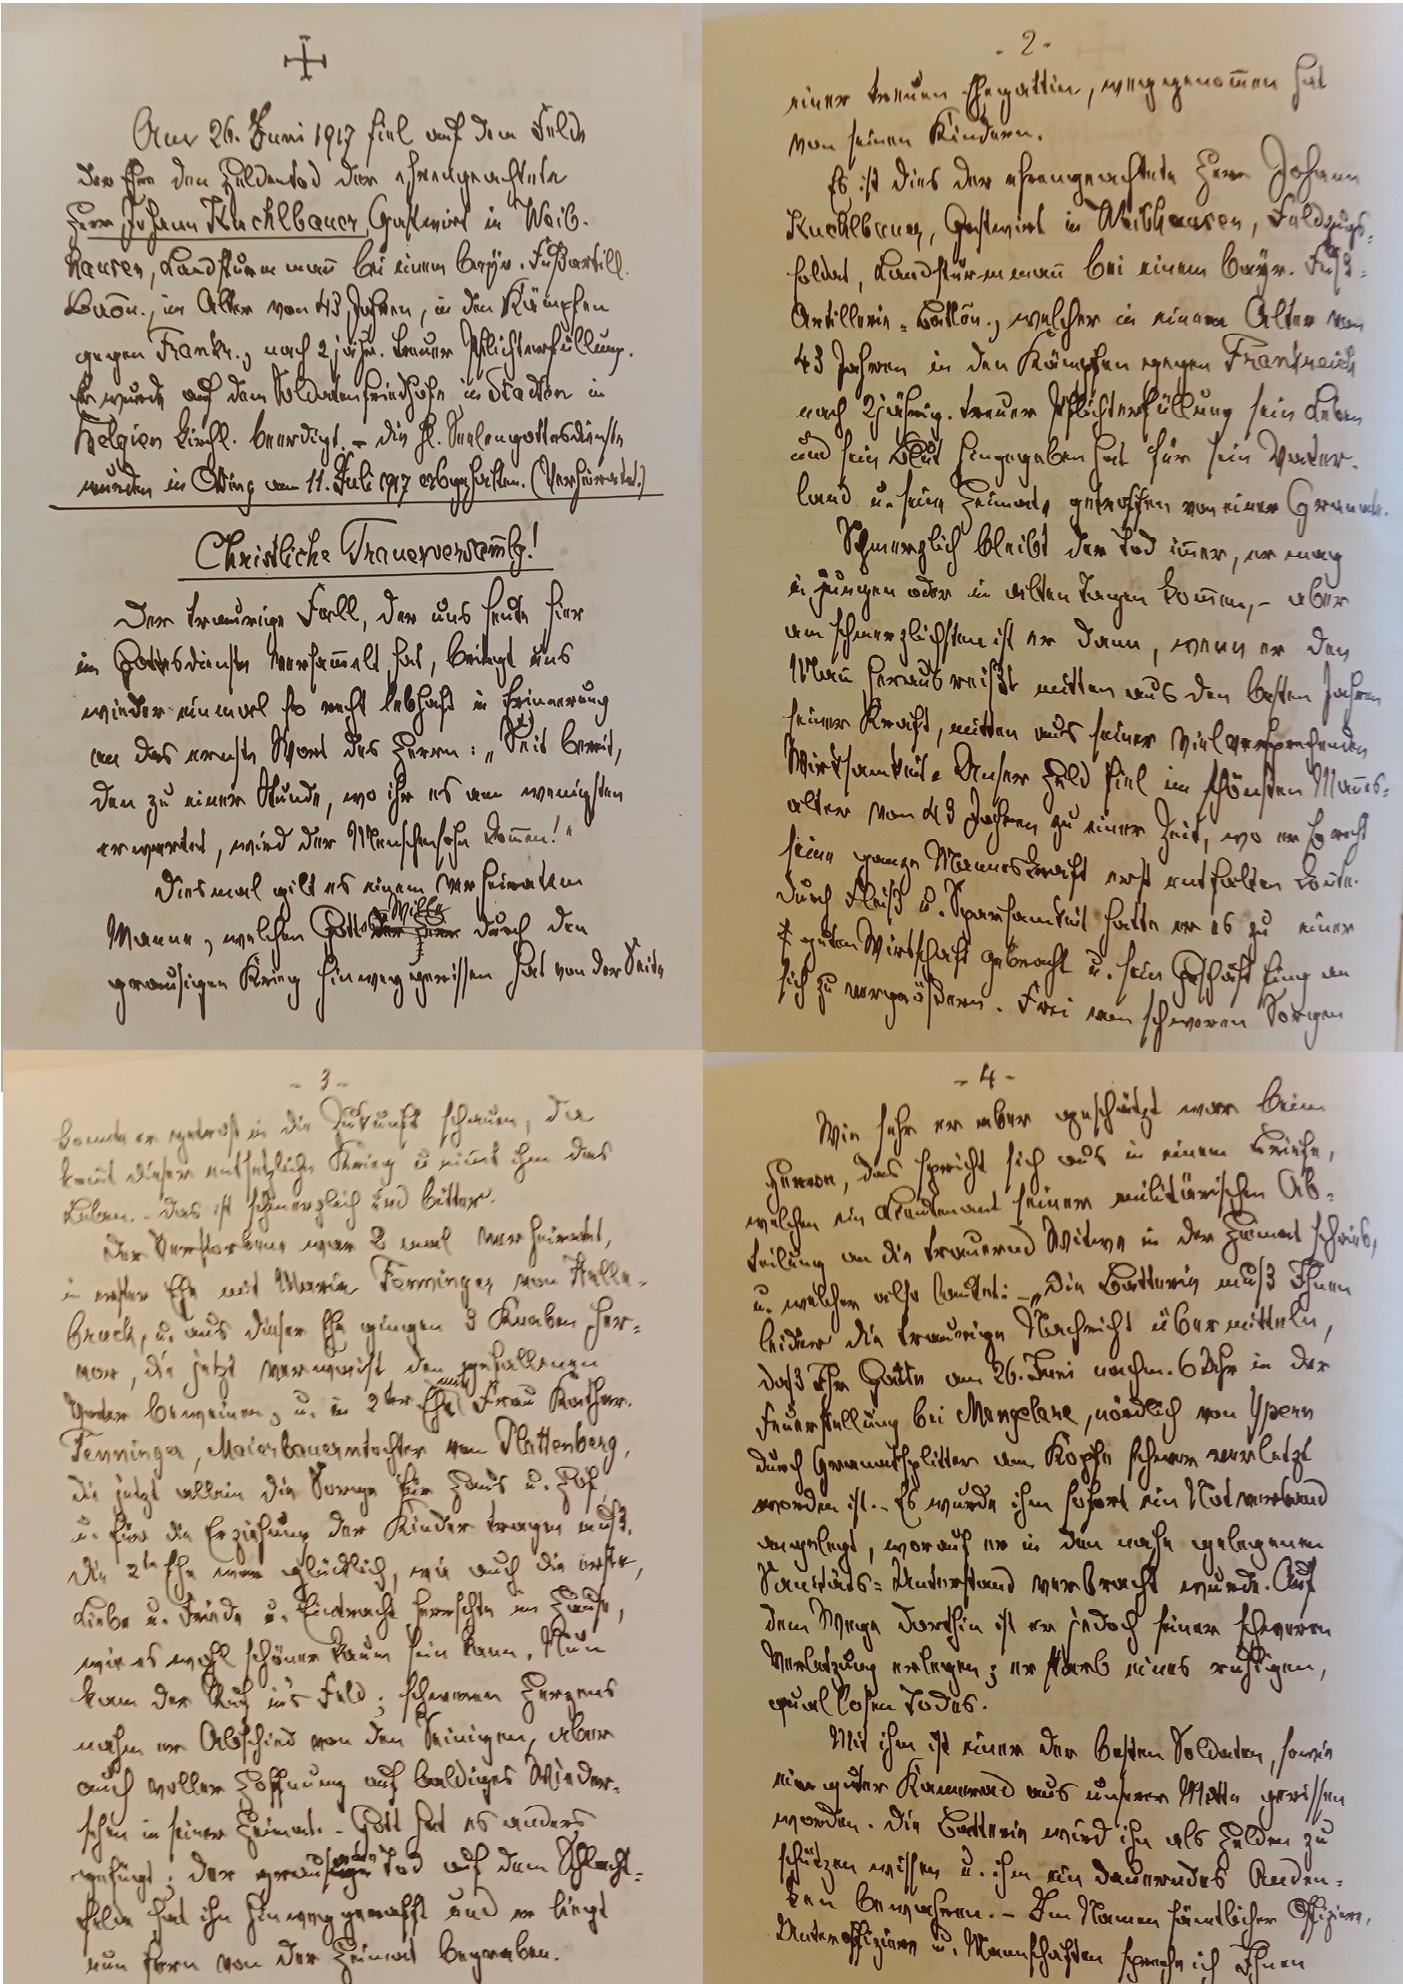 Am 26. Juni 1917 fiel auf dem Felde
der Ehre den Heldentod der ehrengeachtete
Herr Johann Kuchlbauer, Gastwirt in Weib-
hausen, Landsturmmann bei einem bayr. Fußartill.
Baon., im Alter von 43 Jahren, in den Kämpfen
gegen Frankr., nach 2 jähr. treuer Pflichterfüllung.
Er wurde auf dem Soldatenfriedhofe in Staden in
Belgien kirchl. beerdigt. – Die hl. Seelengottesdienste
wurden in Otting am 11. Juli 1917 abgehalten. (Verheiratet.)
Christliche Trauerversammlg!
Der traurige Fall, der uns heute hier
im Gottesdienste versammelt hat, bringt uns
wieder einmal so recht lebhaft in Erinnerung
an das ernste Wort des Herrn: „Seit bereit,
den zu einer Stunde, wo ihr es am wenigsten
erwartet, wird der Menschensohn kommen!“
Diesmal gilt es einem verheirateten
Manne, welchen Gottes Wille durch den
grausigen Krieg hinweggerissen hat von der Seite
- 2 -
einer treuen Ehegattin, weggenommen hat
von seinen Kindern.
Es ist dies der ehrengeachtete Herr Johann
Kuchlbauer, Gastwirt in Weibhausen, Feldzugs-
soldat, Landsturmmann bei einem bayr. Fuß-
Artillerie-Batlon., welcher in einem Alter von
43 Jahren in den Kämpfen gegen Frankreich
nach 2jährig. treuer Pflichterfüllung sein Leben
und sein Blut hingegeben hat für sein Vater-
land u. seine Heimat, getroffen von einer Granate.
Schmerzlich bleibt der Tod immer, er mag
in jungen oder in alten Tagen kommen, – aber
am schmerzlichsten ist er dann, wenn er den
Mann herausreißt mitten aus den besten Jahren
seiner Kraft, mitten aus seiner vielversprechenden
Wirksamkeit. Unser Held fiel im schönsten Mannes-
alter von 43 Jahren zu einer Zeit, wo er so recht
seine ganze Manneskraft erst entfalten konnte.
Durch Fleiß u. Sparsamkeit hatte er es zu einer
guten Wirtschaft gebracht u. sein Geschäft fing an
sich zu vergrößern. Frei von schweren Sorgen
- 3 -
konnte er getrost in die Zukunft schauen, da
kommt dieser entsetzliche Krieg u nimmt ihm das
Leben. – Das ist schmerzlich und bitter.
Der Verstorbene war 2 mal verheiratet,
in erster Ehe mit Maria Fenninger von Helle-
bruck, u. aus dieser Ehe gingen 3 Knaben her-
vor, die jetzt verwaist den gefallenen
Vater beweinen, u. in 2ter Ehe mit Frau Kathar.
Fenninger, Maierbauerntochter von Plattenberg,
die jetzt allein die Sorge für Haus u. Hof
u. für die Erziehung der Kinder tragen muß.
Die 2te Ehe war glücklich, wie auch die erste,
Liebe u. Friede u. Eintracht herrschte im Hause,
wie es wohl schöner kaum sein kann. Nun
kam der Ruf in's Feld; schweren Herzens
nahm er Abschied von den Seinigen, aber
auch voller Hoffnung auf baldiges Wieder-
sehen in seiner Heimat. – Gott hat es anders
gefügt; der grausige Tod auf dem Schlacht-
felde hat ihn hinweggerafft und er liegt
nun fern von der Heimat begraben.
- 4 -
Wie sehr er aber geschätzt war beim
Heere, das spricht sich aus in einem Briefe,
welchen ein Leutenant seiner militärischen Ab-
teilung an die trauernd Witwe in der Heimat schrieb,
u. welcher also lautet: – „Die Batterie muß Ihnen
leider die traurige Nachricht übermitteln,
daß Ihr Gatte am 26. Juni nachm. 6 Uhr in der
Feuerstellung bei Mangelare, nördlich von Ypern
durch Granatsplitter am Kopfe schwer verletzt
worden ist. – Es wurde ihm sofort ein Notverband
angelegt, worauf er in den nahe gelegenen
Sanitäts-Unterstand verbracht wurde. Auf
dem Wege dorthin ist er jedoch seiner schweren
Verletzung erlegen; er starb eines ruhigen,
quallosen Todes.
Mit ihm ist einer der besten Soldaten, sowie
ein guter Kamerad aus unserer Mitte gerissen
worden. Die Batterie wird ihn als Helden zu
schätzen wissen u. ihm ein dauerndes Anden-
ken bewahren. – Im Namen sämtlicher Offiziere,
Unteroffiziere u. Mannschaften spreche ich Ihnen